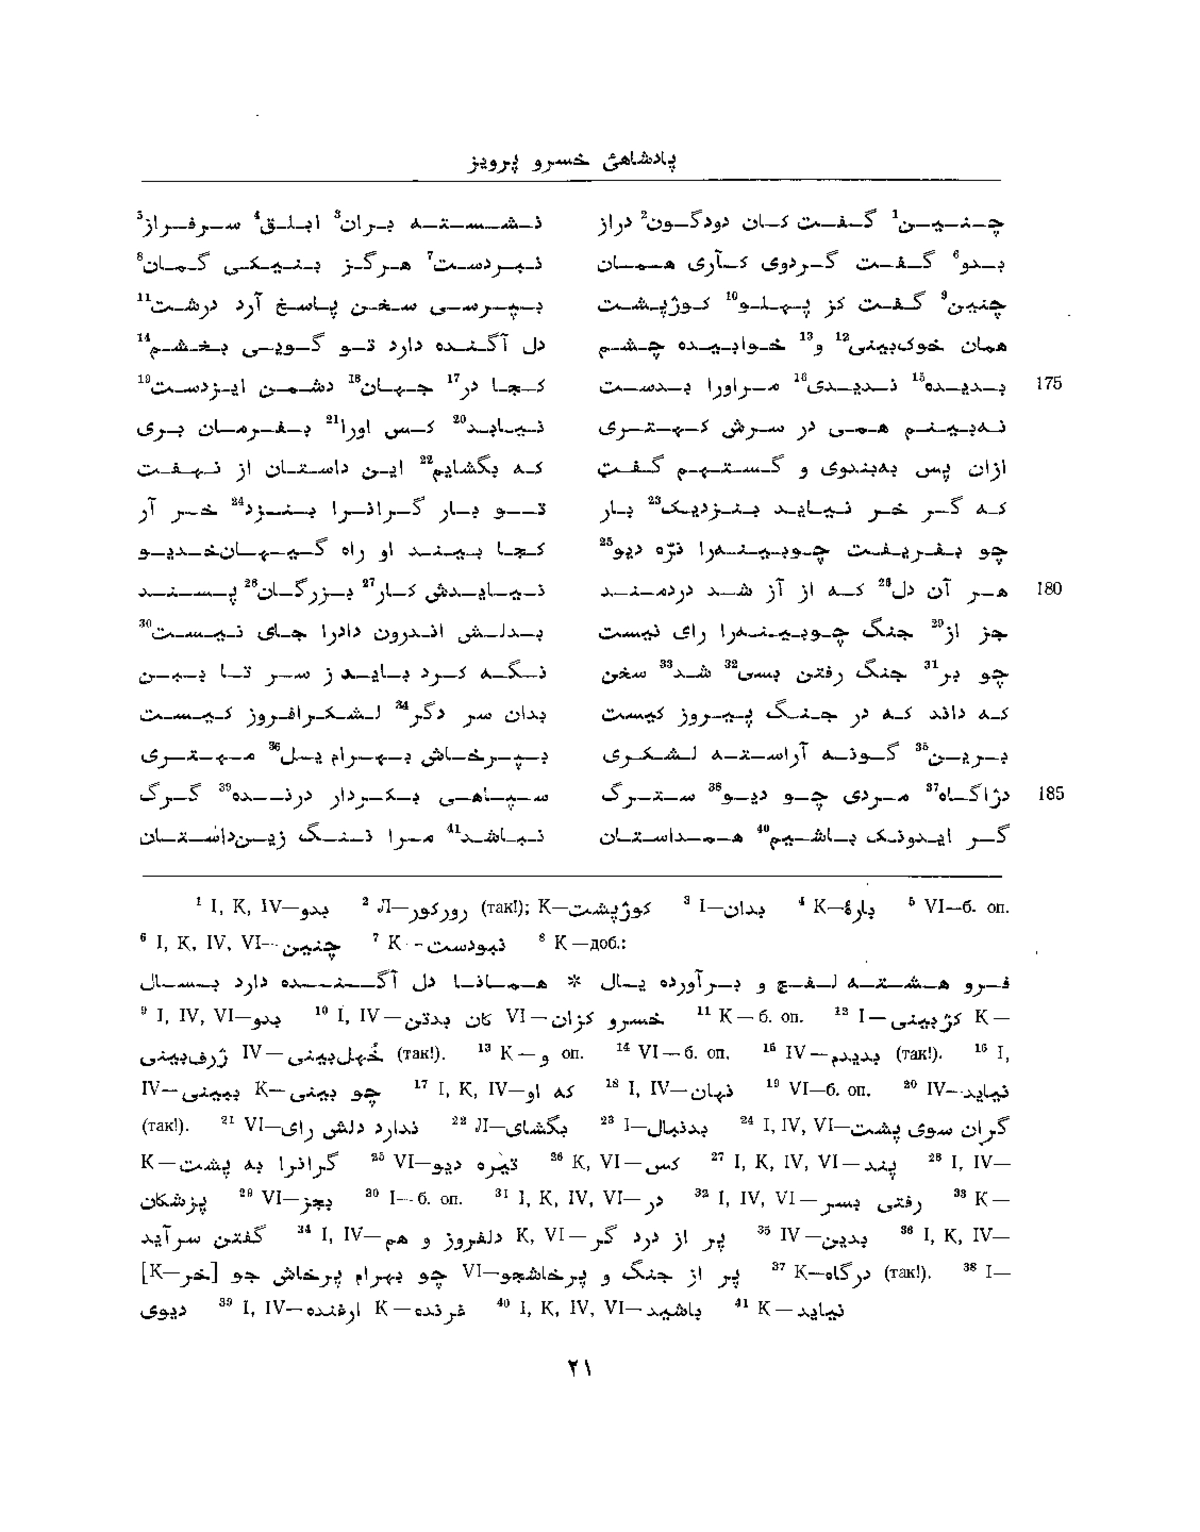 پادشاهئ خسرو پرویز
چنین¹ گفت کان دودگون² دراز نشسته بران³ ابلق⁴ سرفراز⁵
بدو⁶ گفت گردوی کآری همان نبردست⁷ هرگز بنیکی گمان⁸
چنین⁹ گفت کز پهلو¹⁰ کوژپشت بپرسی سخن پاسخ آرد درشت¹¹
همان خوک‌بینی¹² و¹³ خوابیده چشم دل آگنده دارد تو گویی بخشم¹⁴
175 بدیده¹⁵ ندیدی¹⁶ مراورا بدست کجا در¹⁷ جهان¹⁸ دشمن ایزدست¹⁹
نه‌بینم همی در سرش کهتری نیابد²⁰ کس اورا²¹ بفرمان بری
ازان پس به‌بندوی و گستهم گفت که بگشایم²² این داستان از نهفت
که گر خر نیاید بنزدیک²³ بار تو بار گرانرا بنزد²⁴ خر آر
چو بفریفت چوبینه‌را نرّه دیو²⁵ کجا بیند او راه گیهان‌خدیو
180 هر آن دل²⁶ که از آز شد دردمند نیایدش کار²⁷ بزرگان²⁸ پسند
جز از²⁹ جنگ چوبینه‌را رای نیست بدلش اندرون دادرا جای نیست³⁰
چو بر³¹ جنگ رفتن بسی³² شد³³ سخن نگه کرد باید ز سر تا ببن
که داند که در جنگ پیروز کیست بدان سر دگر³⁴ لشکرافروز کیست
برین³⁵ گونه آراسته لشکری بپرخاش بهرام یل³⁶ مهتری
185 دژاگاه³⁷ مردی چو دیو³⁸ سترگ سپاهی بکردار درنده³⁹ گرگ
گر ایدونک باشیم⁴⁰ همداستان نباشد⁴¹ مرا ننگ زین‌داستان
¹ I, K, IV—بدو ² Л—رورکور (так!); K—کوژپشت ³ I—بدان ⁴ K—بارهٔ ⁵ VI—б. оп.
⁶ I, K, IV, VI—چنین ⁷ K—نبودست ⁸ K—доб.:
فرو هشته لفچ و برآورده یال * همانا دل آگنده دارد بسال
⁹ I, IV, VI—بدو ¹⁰ I, IV—کان بدتن VI—خسرو کزان ¹¹ K—б. оп. ¹² I—کژبینی K—
ژرف‌بینی IV—خُهل‌بینی (так!). ¹³ K—و оп. ¹⁴ VI—б. оп. ¹⁵ IV—بدیدم (так!). ¹⁶ I,
IV—ببینی K—چو بینی ¹⁷ I, K, IV—که او ¹⁸ I, IV—نهان ¹⁹ VI—б. оп. ²⁰ IV—نیاید
(так!). ²¹ VI—ندارد دلش رای ²² Л—بگشای ²³ I—بدنبال ²⁴ I, IV, VI—گران سوی پشت
K—گرانرا به پشت ²⁵ VI—تیره دیو ²⁶ K, VI—کس ²⁷ I, K, IV, VI—پند ²⁸ I, IV—
پزشکان ²⁹ VI—بجز ³⁰ I—б. оп. ³¹ I, K, IV, VI—در ³² I, IV, VI—رفتی بسر ³³ K—
گفتن سرآید ³⁴ I, IV—دلفروز و هم K, VI—پر از درد گر ³⁵ IV—بدین ³⁶ I, K, IV—
[K—خر] چو بهرام پرخاش جو VI—پر از جنگ و پرخاشجو ³⁷ K—درگاه (так!). ³⁸ I—
دیوی ³⁹ I, IV—ارغنده K—غرنده ⁴⁰ I, K, IV, VI—باشید ⁴¹ K—نیاید
۲۱